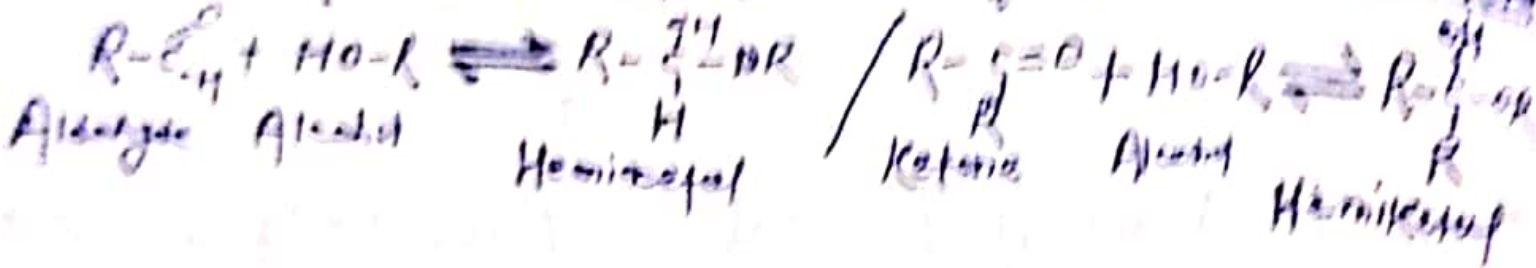 O OH OH
R-C-H + HO-R ⇌ R-C-OR / R-C=O + HO-R ⇌ R-C-OR
H R R
Aldehyde Alcohol Hemiacetal Ketone Alcohol Hemiketal